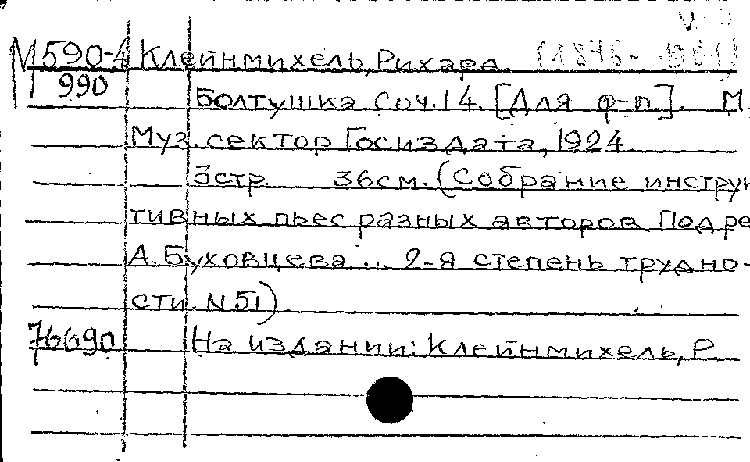 М590-4 Клейнмихель, Рихард.
990 Болтушка Соч.14. [Для ф-п.]. М.
Муз. сектор Госиздата, 1924
3стр 36см. (Собрание инструк
тивных пьес разных авторов Под ре
А. Буховцева... 2-я степень трудно-
сти N 51)
76690 На издании: Клейнмихель, Р.